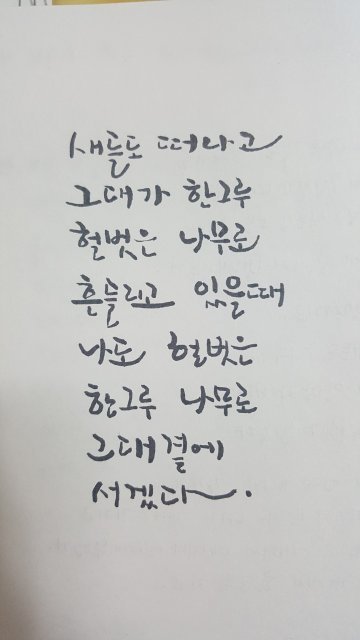 새들도 떠나고
그대가 한그루
헐벗은 나무로
흔들리고 있을때
나도 헐벗은
한그루 나무로
그대곁에
서겠다.